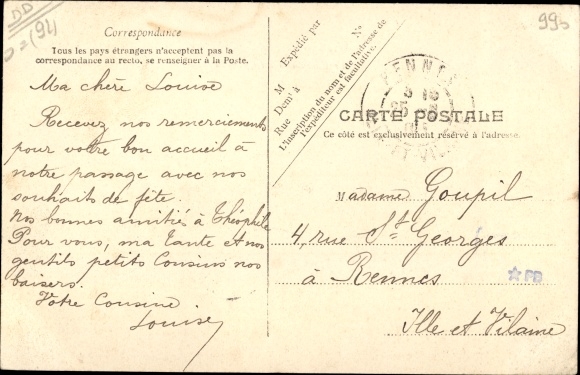 DD
(94)
99b
Correspondance
Tous les pays étrangers n'acceptent pas la
correspondance au recto, se renseigner à la Poste.
Ma chère Louise
Recevez nos remerciements
pour votre bon accueil à
notre passage avec nos
souhaits de fête.
Nos bonnes amitiés à Théophile
Pour vous, ma tante et nos
gentils petits Cousins nos
baisers.
Votre Cousine
Louise
Expédié par
M
Demt à
Rue
No
L'inscription du nom et de l'adresse de
l'expéditeur est facultative.
RENNES
CARTE POSTALE
Ce côté est exclusivement réservé à l'adresse.
Madame Goupil
4, rue St Georges
à Rennes
PB
Ille et Vilaine